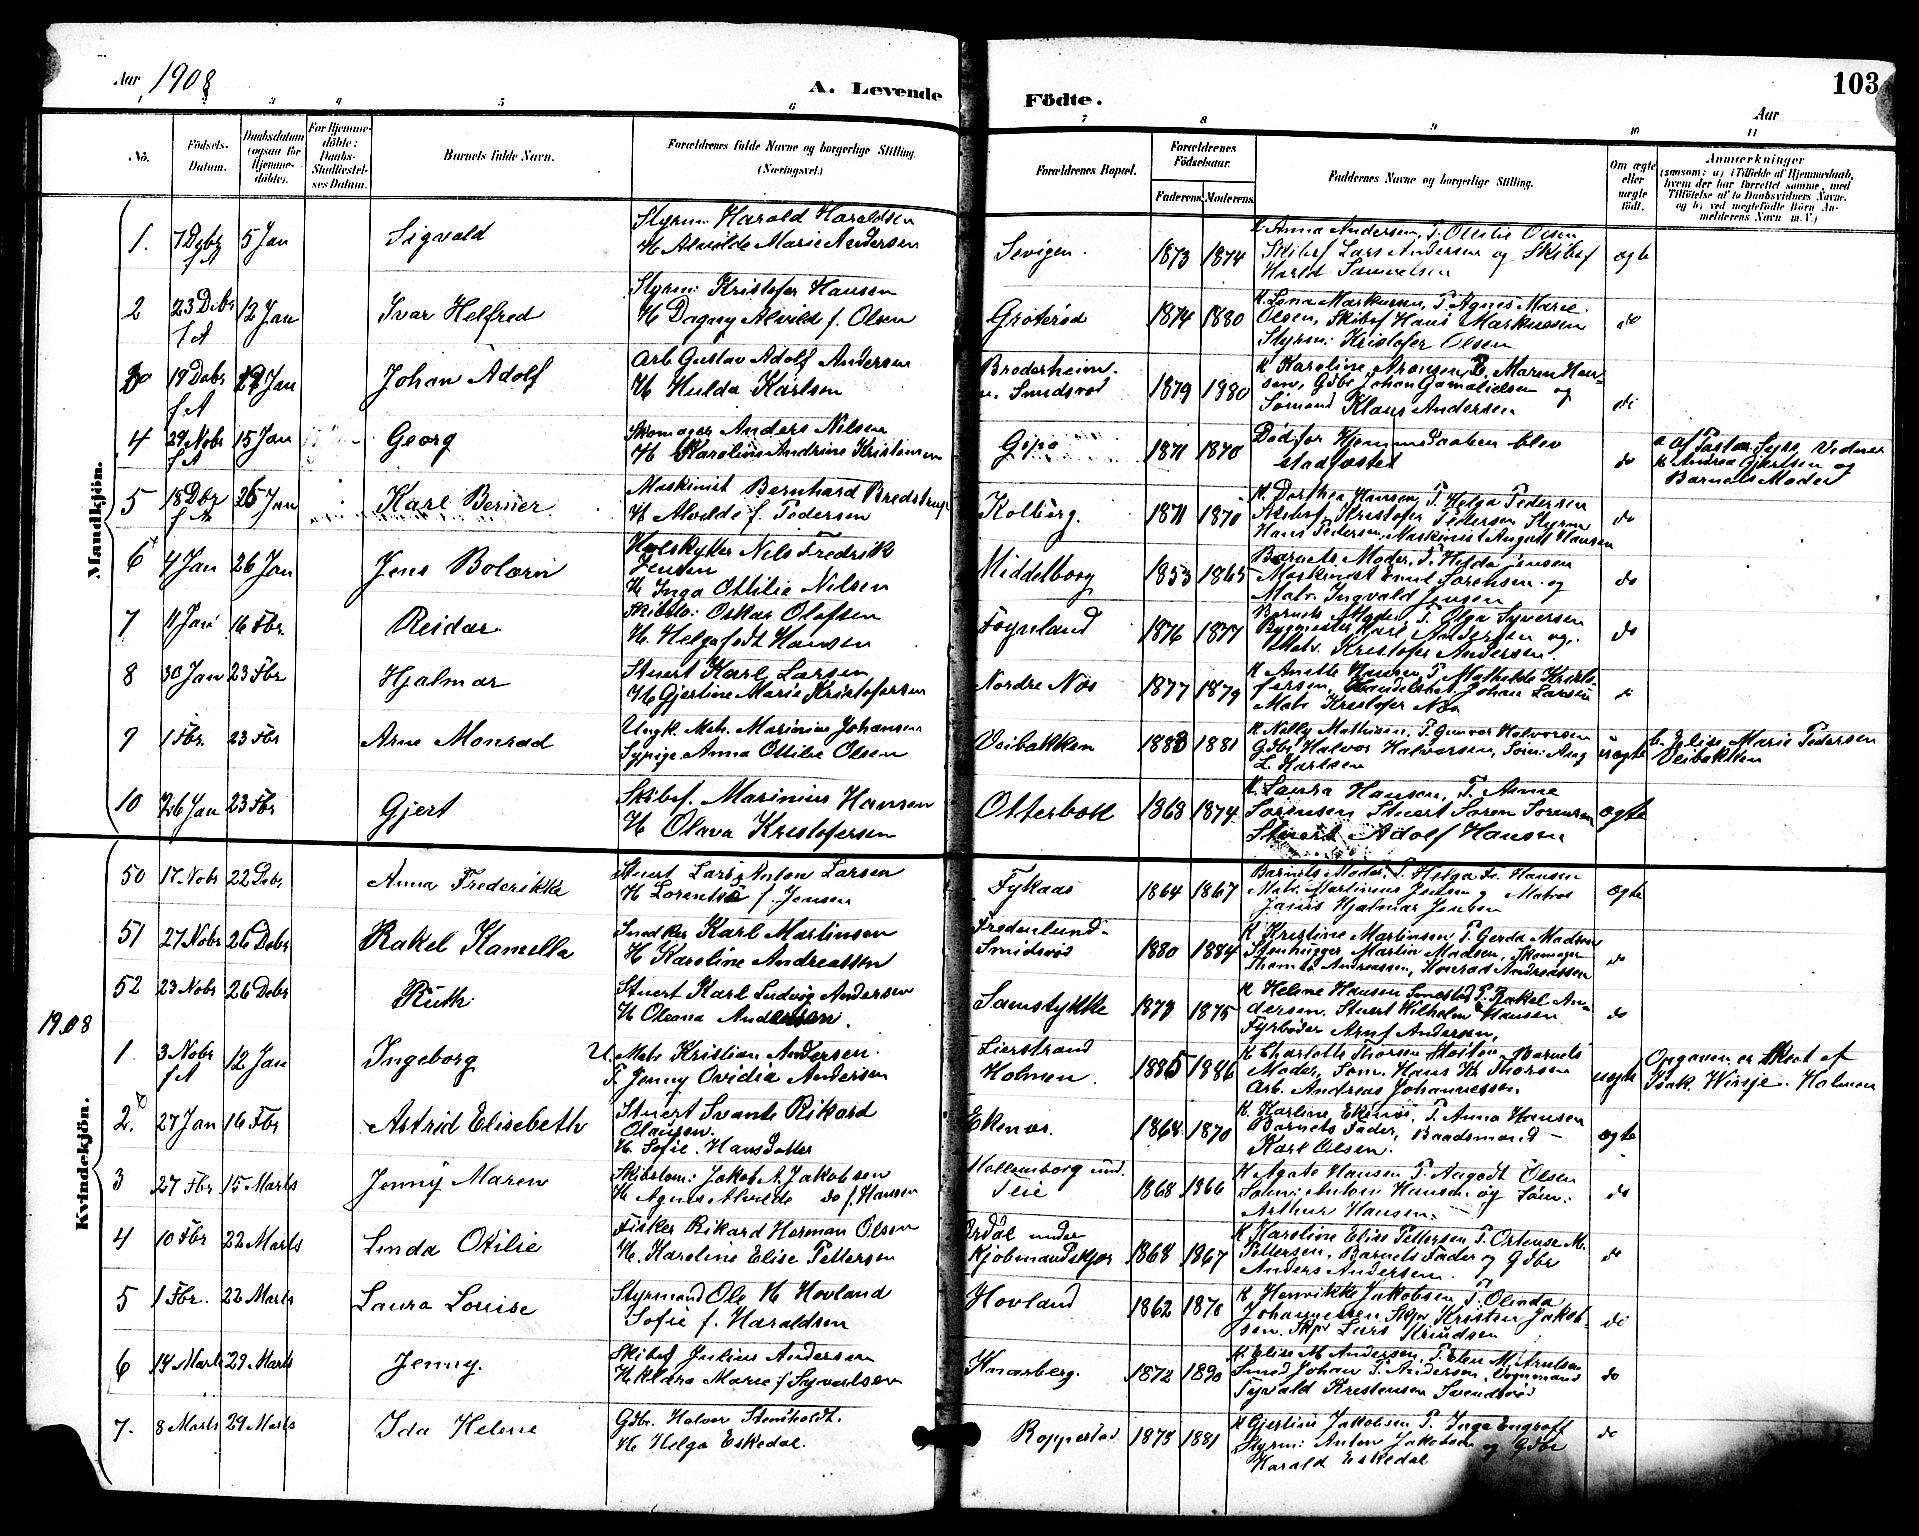 Aar 1908
A. Levende Födte.
103
Aar
3 4 5 6 7 8 9 10 11
No.
Födsels-Datum.
Daabsdatum (ogsaa for Hjemmedöbte).
For Hjemmedöbte: Daabs-Stadfæstelses Datum.
Barnets fulde Navn.
Forældrenes fulde Navne og borgerlige Stilling. (Næringsvei.)
Forældrenes Bopæl.
Forældrenes Födselsaar.
Faderens. Moderens.
Faddernes Navne og borgerlige Stilling.
Om ægte eller uægte födt.
Anmærkninger (saasom: a) i Tilfælde af Hjemmedaab, hvem der har forrettet samme, med Tilföielse af to Daabsvidners Navne, og b) ved uegtefödte Börn Anmelderens Navn m. V.)
Mandkjön.
1. 7 Dcbr f A 5 Jan Sigvald
Styrm. Harald Haraldsen
H Alvilde Marie Andersen
Sevigen. 1873 1874
K Anna Andersen, P. Otilie Olsen
Skibsf Lars Andersen og Skibsf
Harld Samuelsen
ægte
2 23 Dcbr f A 12 Jan Ivar Helfred
Styrm: Kristofer Hansen
H Dagny Alvild f. Olsen
Gröteröd 1874 1880
K. Lena Markussen, P. Agnes Marie
Olsen, Skibsf Hans Markussen
Styrm: Kristofer Olsen
do
3 19 Dcbr f A Jan Johan Adolf
Arb. Gustav Adolf Andersen
H Hulda Karlsen
Broderheim u. Smidsrød 1879 1880
K Karoline Aronsen, P. Maren Hansen, Gdbr Johan Gamalielsen og
Sømand Klaus Andersen
do
4 29 Nobr f A 15 Jan Georg
Skomager Anders Nilsen
H Karoline Andrine Kristensen
Gipø 1871 1870
Död før Hjemmedaaben blev
stadfæstet
do
a af Pastor Vidner
K Andrea Gjertsen og
Barnets Moder
5 18 Dbr f A 26 Jan Karl Berner
Maskinist Bernhard Bredstrup
H Alvilde f. Pedersen
Kolberg. 1871 1870
K. Dorthea Hansen, P. Helga Pedersen
Skibsf Kristofer Pedersen Styrm
Hans Pedersen, Maskinist August Hansen
do
6 4 Jan 26 Jan Jens Bolærn
Hvalskytter Nils Fredrik
Jensen
H Inga Ottilie Nilsen
Middelborg 1853 1865
Barnets Moder, P. Helda Jensen
Maskinist Emil Sørensen og
Matr. Ingvald Jensen
do
7 11 Jan 16 Fbr. Reidar
Skibst: Oskar Olafsen
H. Helga født Hansen
Føynland 1876 1877
Barnets Moder, P. Olga Syversen
Bygmester Karl Andersen og
Matr. Kristofer Andersen
do
8 30 Jan 23 Fbr Hjalmar
Stuert Karl Larsen
H Gjertine Marie Kristofersen
Nordre Nøs 1877 1879
K Anette Hansen P. Mathilde Kristofersen, Handelsbet. Johan Larsen
Matr Kristofer Nøs
do
9 1 Fbr. 23 Fbr Arne Monrad
Ungk. Matr. Marinius Johansen
Sypige Anna Ottilie Olsen
Veibakken 1883 1881
K Nelly Mathisen, P. Gunvor Halvorsen
Gdbr Halvor Halvorsen, Søm: Aug
L. Karlsen
uægte
b. Elise Marie Pedersen
Veibakken
10 26 Jan 23 Fbr Gjert
Skibsf. Marinius Hansen
H Olava Kristofersen
Otterbæk 1868 1874
K. Laura Hansen, P. Anne
Sørensen Stuert Søren Sørensen
Stuert Adolf Hansen
ægte
Kvindekjön.
50 17 Nobr 22 Dcbr Anna Frederikke
Stuert Lars Anton Larsen
H Lorentse f. Jensen
Fykaas 1864 1867
Barnets Moder, P. Helga Fr. Hansen
Matr. Martinius Jensen og Matros
Janus Hjalmar Jensen
ægte
51 27 Nobr 26 Dcbr Rakel Kamella
Snedker Karl Martinsen
H Karoline Andreassen
Fredenlund Smidsrød 1880 1884
K Kristine Martinsen P. Gerda Madsen
Stenhugger Martin Madsen, Skomager
Thomas Andreassen, Konrad Andreassen
do
52 23 Nobr 26 Dcbr Ruth
Stuert Karl Ludvig Andersen
H Oleana Andersen.
Samstykke 1873 1875
K Helene Hansen Smestad P. Rakel Andersen, Stuert Wilhelm Hansen
Fyrbøder Arnf Andersen,
do
1908
1. 3 Nobr f A 12 Jan Ingeborg
U. Matr Kristian Andersen.
P. Jenny Ovidia Andersen
Lierstrand Holmen. 1885 1886
K Charlotte Thorsen Barnets
Moder, Søm. Hans Kr Thorsen
Arb. Andreas Johannessen
uægte
Opgaven er skret af
Isak. Holmen
2. 27 Jan 16 Fbr Astrid Elisebeth
Stuert Svante Rikard
Olausen.
H. Sofie. Hansdatter
Ekenes. 1868 1870
K. Karline Ekenøs, P. Anna Hansen
Barnets Fader, Baadsmand
Karl Olsen.
ægte
3 27 Fbr 15 Marts Jenny Maren
Skibstøm: Jakob A. Jakobsen
H Agnes Alvilde do f. Hansen
Hollenborg und. Teie 1868 1866
K Agate Hansen P. Aagodt Olsen
Søm: Anton Hansen og Søm:
Arthur Hansen.
do
4 10 Fbr 22 Marts Linda Otilie
Fisker Rikard Herman Olsen
H. Karoline Elise Pettersen
Ordal under Kjøbmandskjær 1868 1867
K Karoline Elise Pettersen P. Ortense M.
Pettersen, Barnets Fader og Gdbr
Anders Andersen.
do
5 1 Fbr. 22 Marts Laura Louise
Styrmand Ole H Hovland
Sofie f. Haraldsen
Hovland 1862 1870
K Henrikke Jakobsen P. Olinda
Johannessen Skpr Kristen Jakobsen. Skpr Lars Knudsen
do
6 14 Marts 29 Marts Jenny.
Skibsf Julius Andersen
H Klara Marie f Syvertsen
Knarberg. 1872 1880
K. Elise M. Andersen, P. Elen M. Arntsen
Smed Johan P. Andersen,
Tyvald Kristensen Svendsrød
do
7. 8 Marts 29 Marts Ida Helene
Gdbr. Halvor Stensholdt.
H Helga Eskedal.
Roppestad 1873 1881
K Gjertine Jakobsen P. Inga
Styrm: Anton Jakobsen og Gdbr
Harald Eskedal
do